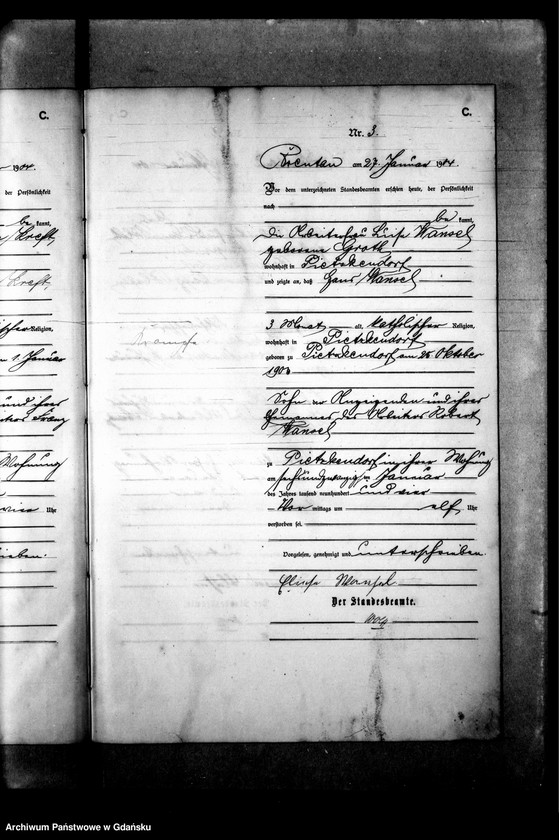 C.
1904.
der Persönlichkeit
be kannt,
Kreft,
Kreft,
Religion,
1. Januar
und ihres
Franz
Wohnung
vier Uhr
C.
Nr. 3.
Brentau am 27. Januar 1904.
Vor dem unterzeichneten Standesbeamten erschien heute, der Persönlichkeit
nach
be kannt,
die Arbeiterfrau Luise Wansel
geborene Groth
wohnhaft in Pietzkendorf
und zeigte an, daß Hans Wansel
3 Monat alt, katholischer Religion,
wohnhaft in Pietzkendorf
geboren zu Pietzkendorf am 25 Oktober
1903
Krämpfe
Sohn der Anzeigenden und ihres
Ehemannes des Arbeiters Robert
Wansel
zu Pietzkendorf in ihrer Wohnung
am sechsundzwanzigsten Januar
des Jahres tausend neunhundert und vier
Vor mittags um elf Uhr
verstorben sei.
Vorgelesen, genehmigt und unterschrieben.
Eliese Wansel
Der Standesbeamte.
Archiwum Państwowe w Gdańsku